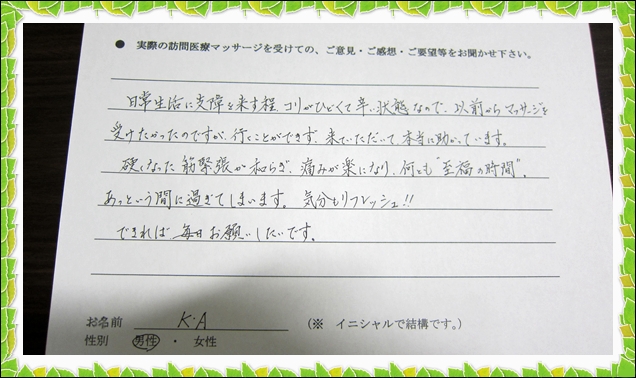 ● 実際の訪問医療マッサージを受けての、ご意見・ご感想・ご要望等をお聞かせ下さい。
日常生活に支障を来す程、コリがひどくて辛い状態なので、以前からマッサージを
受けたかったのですが、行くことができず、来ていただいて本当に助かっています。
硬くなった筋緊張が和らぎ、痛みが楽になり、何とも"至福の時間"。
あっという間に過ぎてしまいます。気分もリフレッシュ!!
できれば毎日お願いしたいです。
お名前 K・A (※ イニシャルで結構です。)
性別 男性 ・ 女性